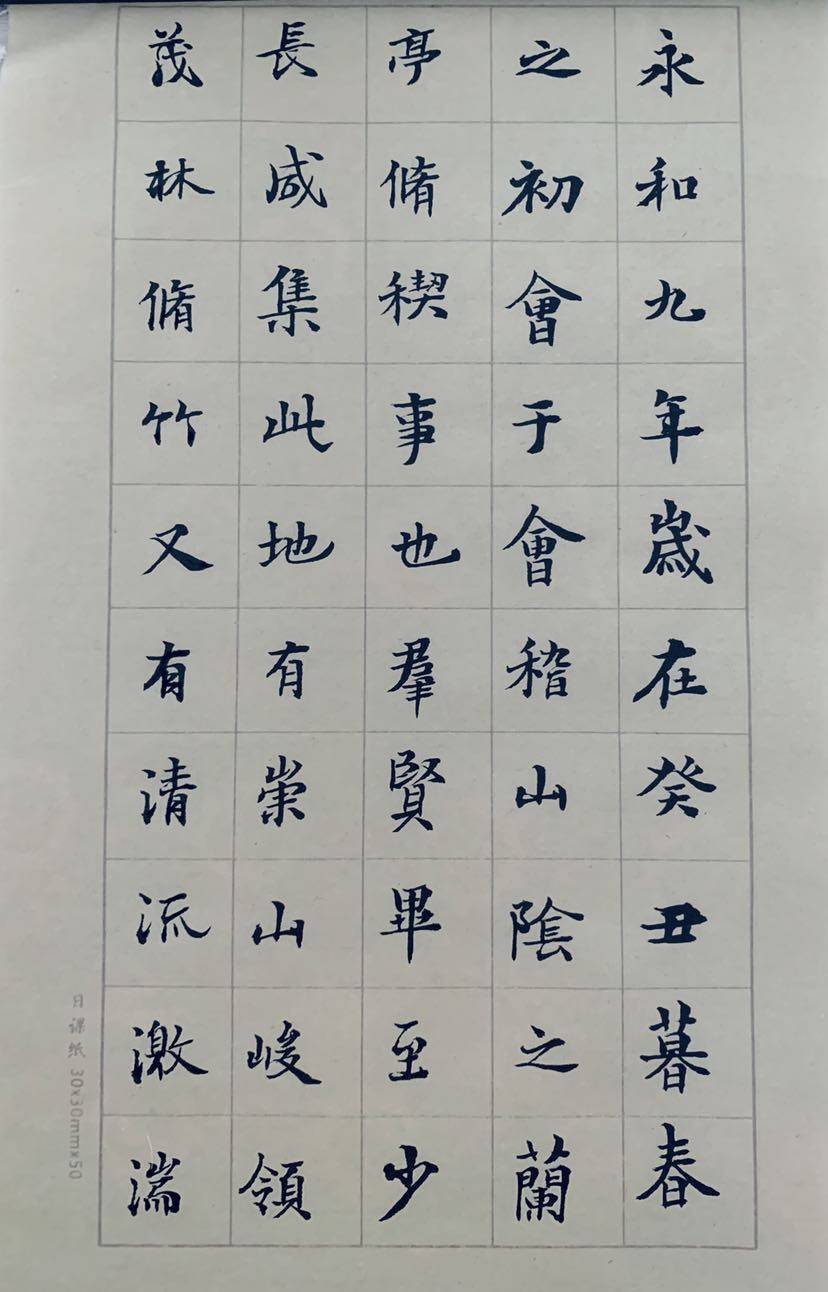 永和九年歲在癸丑暮春
之初會于會稽山陰之蘭
亭脩稧事也羣賢畢至少
長咸集此地有崇山峻領
茂林脩竹又有清流激湍
日课纸 30x30mmx50